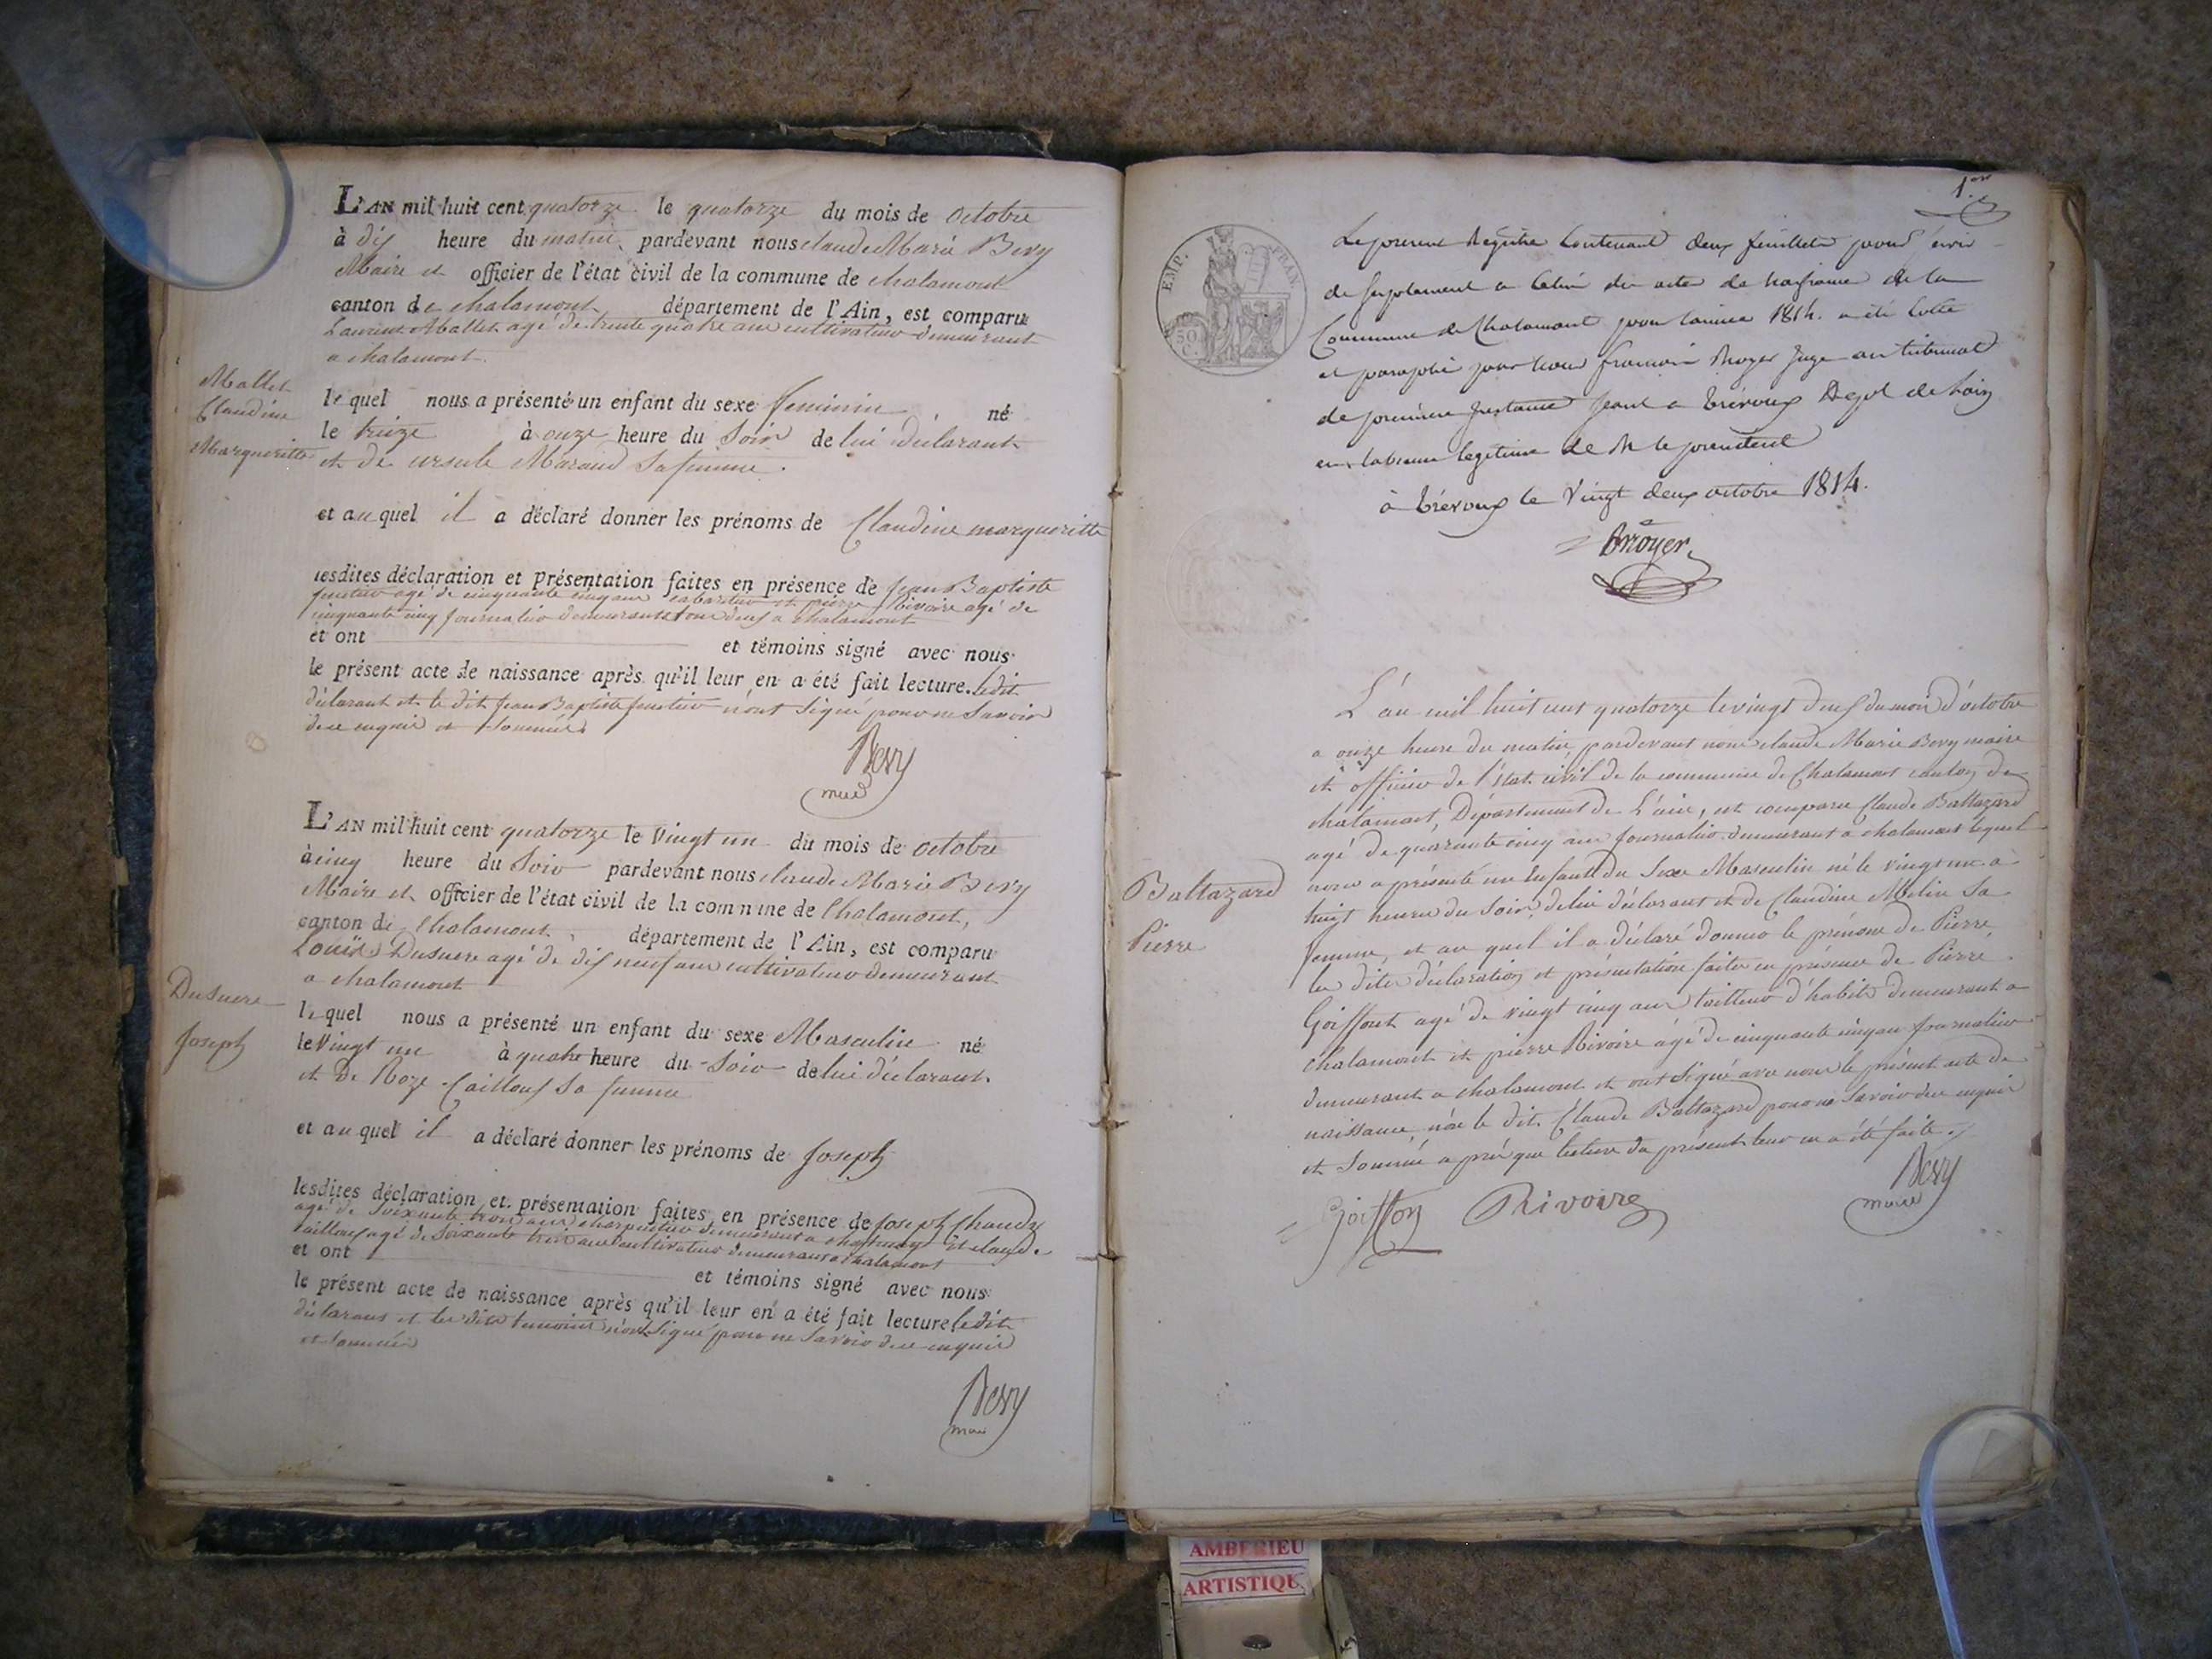 L'AN mil huit cent quatorze le quatorze du mois de octobre
à dix heure du matin pardevant nous claude Marie Bevy
Maire et officier de l'état civil de la commune de chalamont
canton de chalamont département de l'Ain, est comparu
Laurent Mallet agé de trente quatre ans cultivateur demeurant
a chalamont.
Mallet
Claudine
Margueritte
lequel nous a présenté un enfant du sexe feminin, né
le treize à onze heure du soir de lui déclarant
et de ursule Maraud sa femme.
et au quel il a déclaré donner les prénoms de Claudine margueritte
lesdites déclaration et présentation faites en présence de Jean Baptiste
agé de cinquante cinq ans et pierre Rivoire agé de
cinquante cinq journalier demeurants tous deux a chalamont
et ont et témoins signé avec nous
le présent acte de naissance après qu'il leur en a été fait lecture. ledit
déclarant et le dit Jean Baptiste n'ont signé pour ne savoir
de ce enquis et sommés
Bevy
maire
L'AN mil huit cent quatorze le vingt un du mois de octobre
à cinq heure du soir pardevant nous claude Marie Bevy
Maire et officier de l'état civil de la commune de Chalamont,
canton de Chalamont département de l'Ain, est comparu
Louis Dusuere agé de dix neuf ans cultivateur demeurant
a chalamont
Dusuere
Joseph
lequel nous a présenté un enfant du sexe Masculin né
le vingt un à quatre heure du soir de lui déclarant
et de Roze Cailloux sa femme
et au quel il a déclaré donner les prénoms de Joseph
lesdites déclaration et présentation faites en présence de Joseph Chaudy
agé de soixante trois ans charpentier demeurant a et claude
cailloux agé de soixante trois ans cultivateur demeurant a chalamont
et ont et témoins signé avec nous
le présent acte de naissance après qu'il leur en a été fait lecture ledit
déclarant et les dits temoins n'ont signé pour ne savoir de ce enquis
et sommés
Bevy
maire
1er
EMP. FRAN.
50 C.
Le present Registre Contenant deux feuillets pour servir
de suplement a Celui des actes de naissance de la
Commune de Chalamont pour l'année 1814. a été Cotté
et paraphé par nous françois Royer Juge au tribunal
de premiere Instance seant a trévoux Depot de Lain
en labsence legitime de Mr le president
à trévoux le vingt deux octobre 1814.
Royer
L'an mil huit cent quatorze le vingt deux du mois d'octobre
a onze heure du matin, pardevant nous claude Marie Bevy maire
et officier de l'état civil de la commune de Chalamont canton de
chalamont, Département de L'ain, est comparu Claude Baltazard
agé de quarante cinq ans journalier demeurant a chalamont lequel
nous a présenté un Enfant du Sexe Masculin né le vingt un a
huit heures du soir, de lui déclarant et de Claudine Melin sa
femme, et au quel il a déclaré donner le prénom de Pierre
les dites déclaration et présentation faites en présence de Pierre
Goiffont agé de vingt cinq ans tailleur d'habits demeurant a
chalamont et pierre Rivoire agé de cinquante cinq an journalier
demeurant a chalamont et ont signé avec nous le présent acte de
naissance, non le dit Claude Baltazard pour ne savoir de ce enquis
et sommé a près que lecture du present leur en a été faite.
Baltazard
Pierre
Goiffon Rivoire Bevy
maire
AMBERIEU
ARTISTIQU